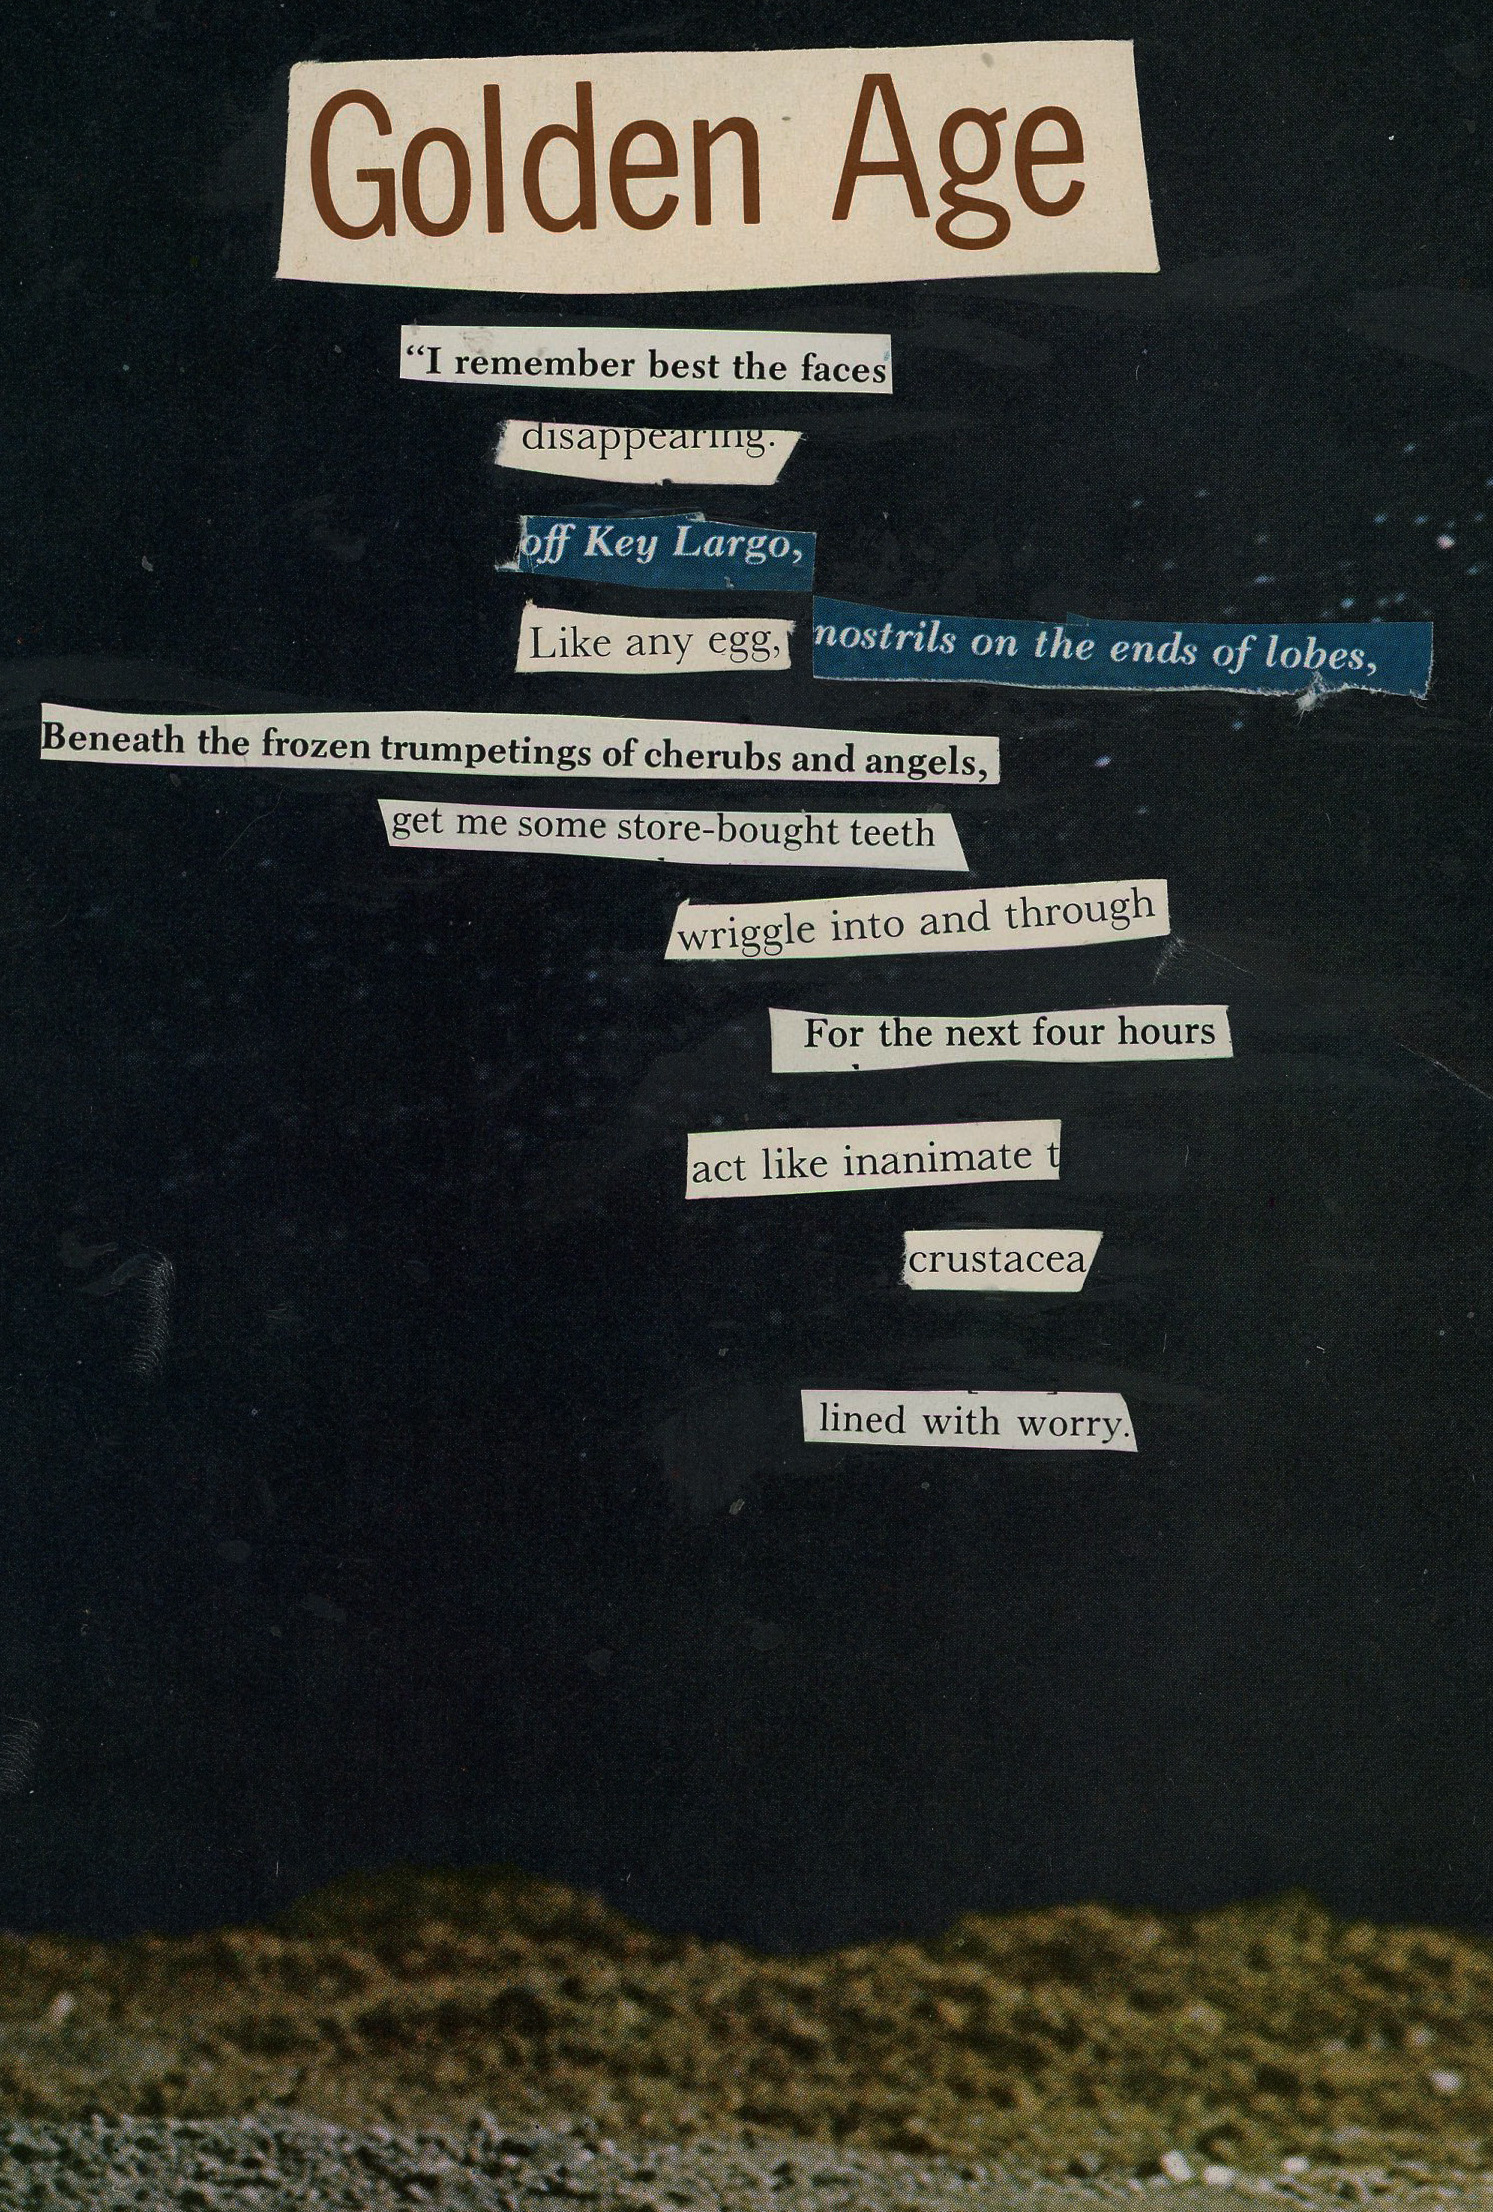 Golden Age
“I remember best the faces
disappearing.
off Key Largo,
Like any egg, nostrils on the ends of lobes,
Beneath the frozen trumpetings of cherubs and angels,
get me some store-bought teeth
wriggle into and through
For the next four hours
act like inanimate t
crustacea
lined with worry.